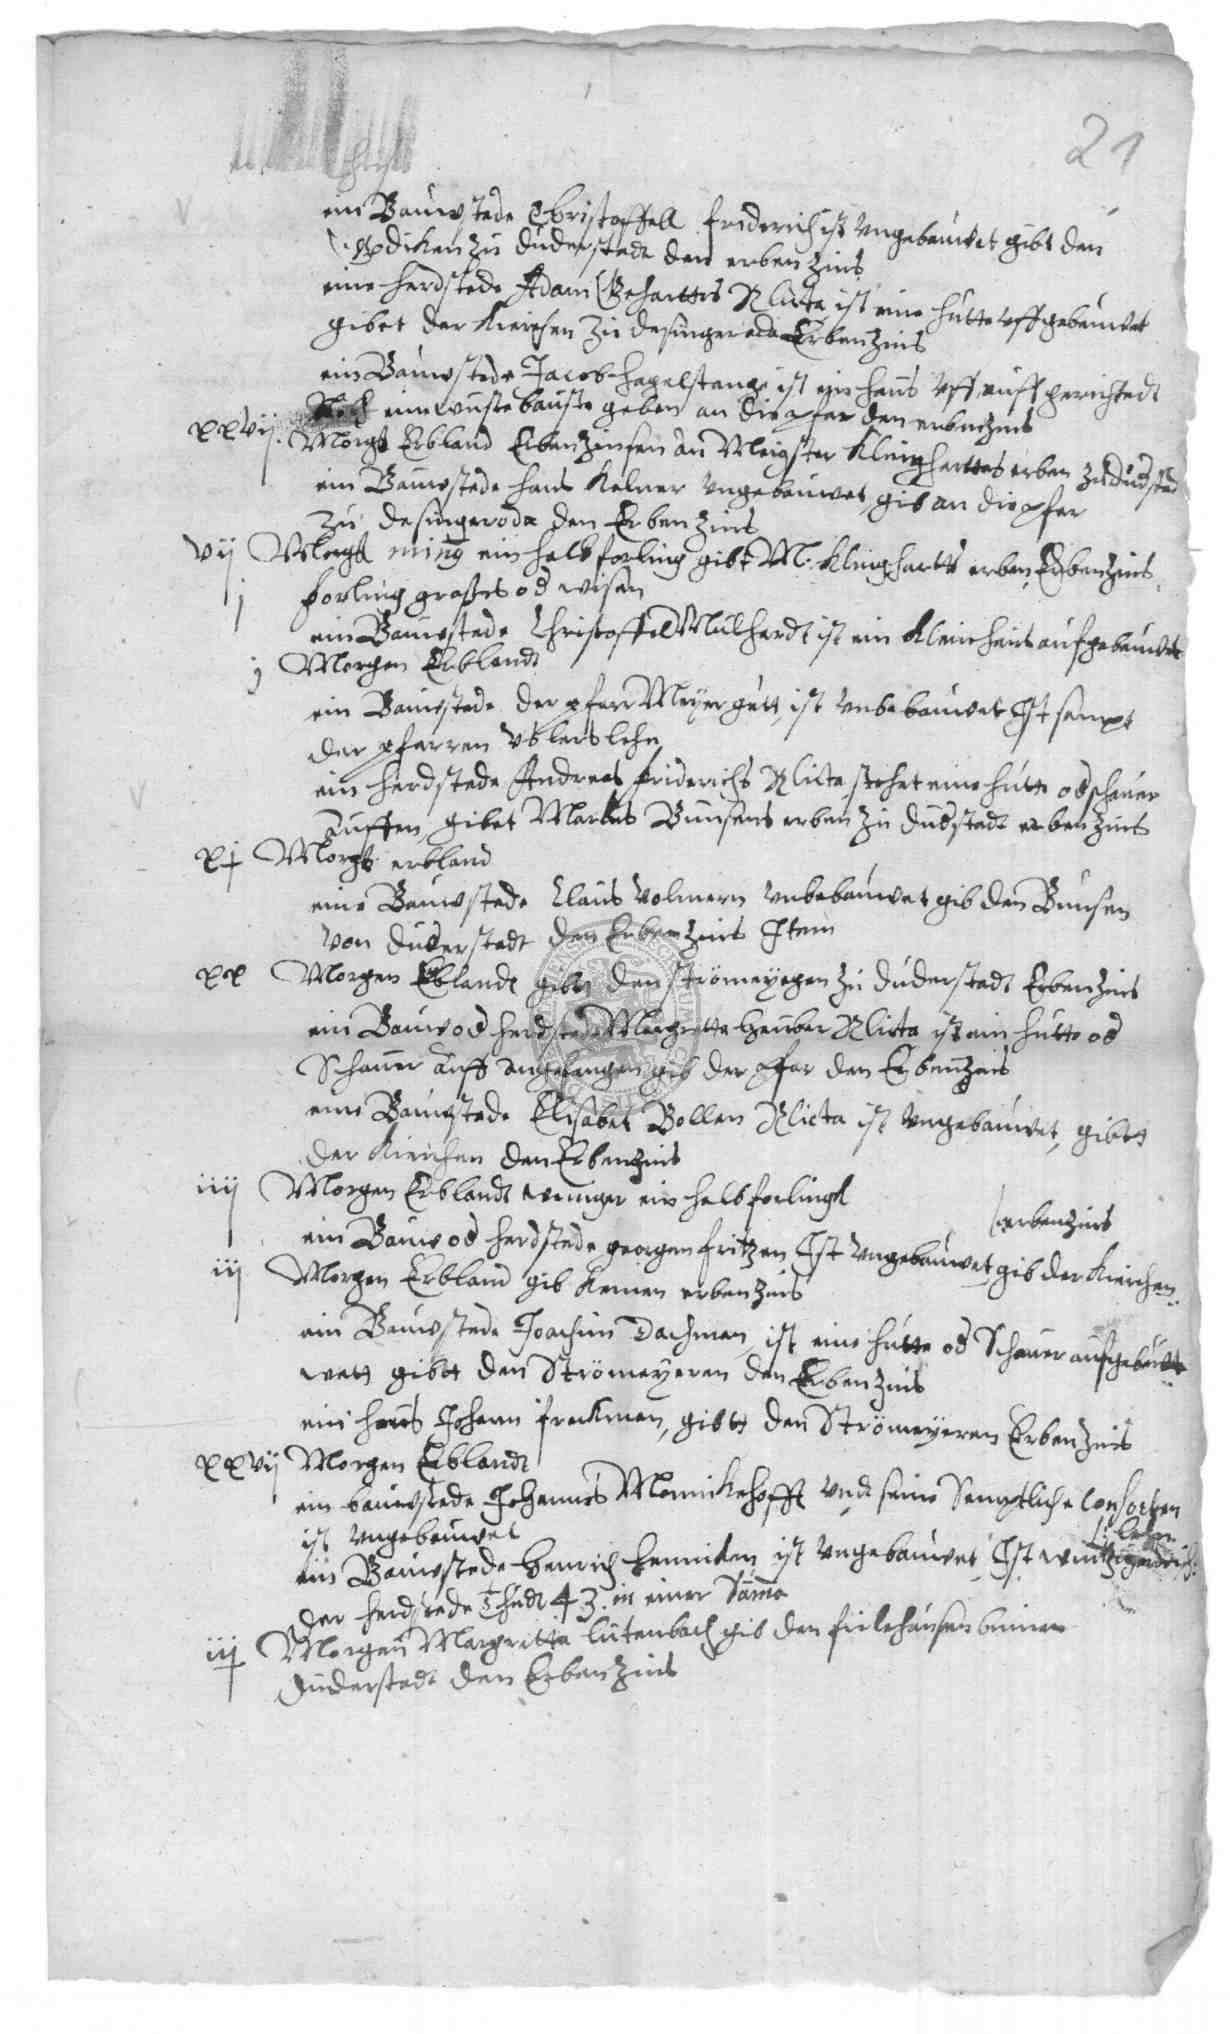 21
ein Bauwstede Christoffell friderich ist Ungebauwet gibt den
zu duderstadt den erben zins
eine herdstede Adam Geharttes Rlicta ist eine hutte uff gebauwet
gibet der Kirchen zu desingeroda Erbenzins
ein Bauwstede Jacob hagelstange ist ein haus uff auff gerichtedt
eine wuste bauste geben an die pfar den erbenzins
xxvij. Morgk Erbland Erbenzinsen an Meigster Klingharttes erben zu dudstad
ein Bauwstede hans Kelner ungebauwet, gib an die pfar
zu desingeroda den Erben Zins
vij Morgk ming ein halb forling gibt M. Klinghartts erben Erbenzins
j forling graßes od wisen
ein Bauwstede Christoffel Mulhardt ist ein klein haus aufgebauwet
j Morgen Erblandt
ein Bauwstede der pfarr Meyer gutt, ist unbebauwet Ist sampt
der pfarren lehn
ein herdstede Andreas friderichs Rlicta stehet eine hutte od schauer
auffen, gibet Marcus Bunsens erben zu dudstadt erben zins
xj Morgk erbland
eine Bauwstede Claus Volmern unbebauwet gib den Bunsen
von duderstadt den Erbenzins Item
xx Morgen Erblandt gibtt den Strömeyegen zu duderstadt Erbenzins
ein Bauw od herdstede Margretta Heuber Rlicta ist ein hutte od
Schauer auff angefangen gib der pfar den Erbenzins
eine Bauwstede Elisabet Bollen Rlicta ist ungebauwet, gibtt
der Kirchen den Erbenzins
iiij Morgen Erblandt weniger ein halb forlingk
erbenzins
ein Bauw od herdstede georgen fritzen Ist ungebauwet gib der Kirchen
iij Morgen Erbland gib keinen erbenzins
ein Bauwstede Joachim Dachman ist eine hutte od Schauer aufgebauwt
wett gibtt den Strömeyeren den Erbenzins
ein haus Johann frackman, gibtt den Strömeyeren Erbenzins
xxvij Morgen Erblandt
ein bauwstede Johannes Monnikehofft undt seine Semptliche Consorten
ist ungebauwet
lehn
ein Bauwstede Henrich Henniken ist ungebauwet Ist
der herdstede 43. in einer Summa
iij Morgen Margretta lutenbach gib den frilehausen binnen
duderstadt den Erbenzins